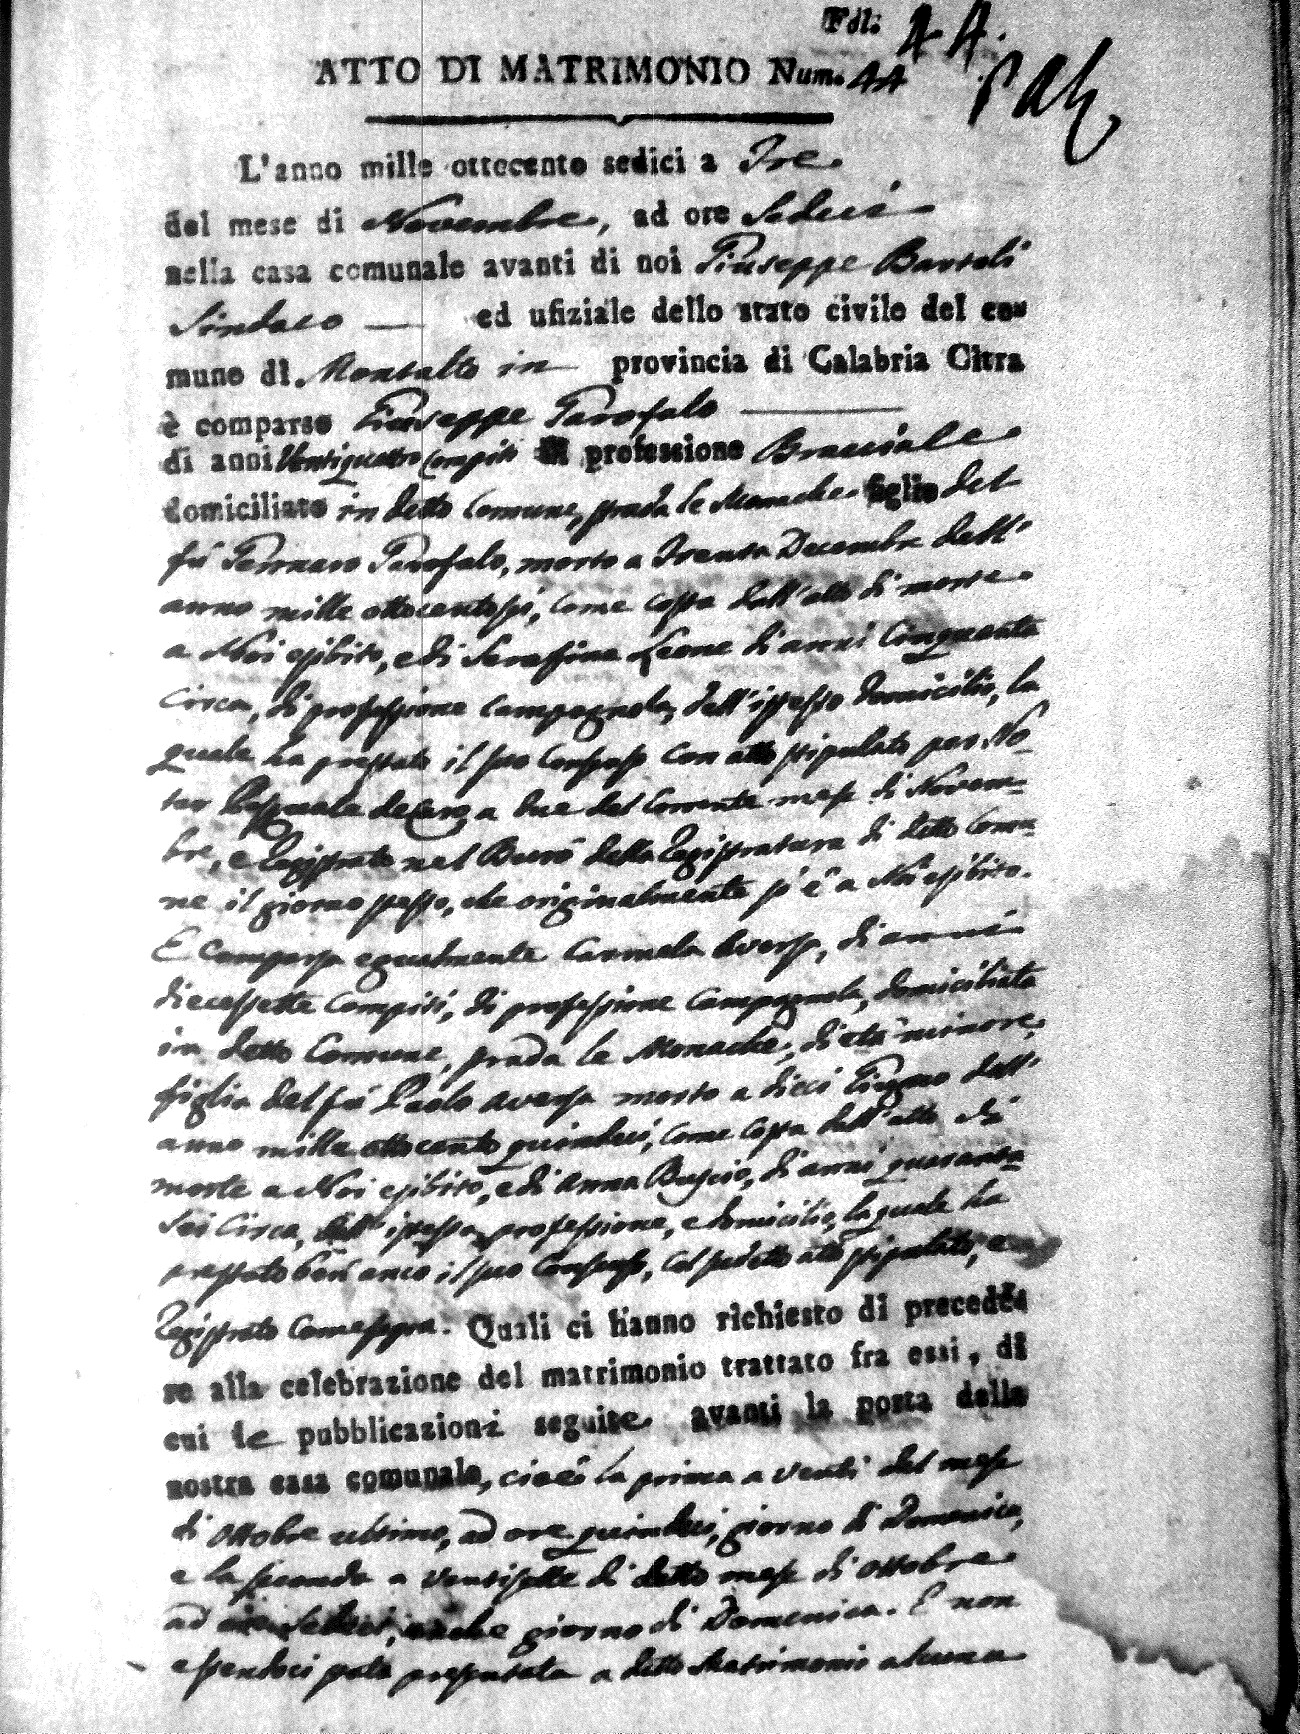 Fol. 44.
ATTO DI MATRIMONIO Num. 44
L'anno mille ottocento sedici a Tre
del mese di Novembre, ad ore Sedeci
nella casa comunale avanti di noi Giuseppe Bartoli
Sindaco ed ufiziale dello stato civile del co-
mune di Montalto in provincia di Calabria Citra
è comparso Giuseppe Garofalo
di anni Ventiquattro compiti di professione Bracciale
domiciliato in detto Comune, strada le Monache figlio del
fù Gennaro Garofalo, morto a Trenta Decembre dell'
anno mille ottocentosei, come costa dall'atto di morte
a Noi esibito, e di Seraffina Leone di anni Cinquanta
circa, di professione Campagnola, dell'istesso domicilio, la
quale ha prestato il suo Consenso con atto stipulato per No-
tar Pasquale de a due del Corrente mese di Novem-
bre, e Registrato nel Burò della Registratura di detto Comu-
ne il giorno stesso, che originalmente si è a Noi esibito.
E Comparsa egualmente Carmela Aversa, di anni
diecessette Compiti, di professione Campagnola, domiciliata
in detto Comune, strada le Monache, di età minore,
figlia del fù Paolo Aversa morto a dieci Giugno dell'
anno mille ottocento quindeci, come costa dall'atto di
morte a Noi esibito, e di Anna Buscio, di anni quaranta
sei Circa, dell'istessa professione, e domicilio, la quale ha
prestato ben anco il suo Consenso, col sudetto atto stipulato, e
Registrato Come sopra. Quali ci hanno richiesto di procede-
re alla celebrazione del matrimonio trattato fra essi, di
cui le pubblicazioni seguite avanti la porta della
nostra casa comunale, cioè la prima a venti del mese
di Ottobre ultimo, ad ore quindeci, giorno di Domenica,
e la seconda a ventisette di detto mese di Ottobre
ad ore Sedeci, anche giorno di Domenica. E non
essendoci stata presentata a detto Matrimonio alcuna